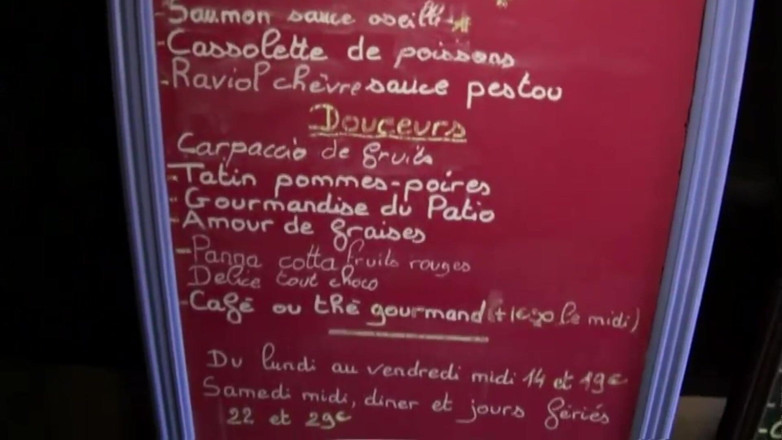 -Saumon sauce oseille
-Cassolette de poissons
-Raviol chèvre sauce pestou
Douceurs
Carpaccio de fruits
-Tatin pommes-poires
-Gourmandise du Patio
-Amour de fraises
-Panga cotta fruits rouges
Delice tout choco
-Café ou thé gourmand (+1€50 le midi)
Du lundi au vendredi midi 14 et 19€
Samedi midi, diner et jours fériés
22 et 29€